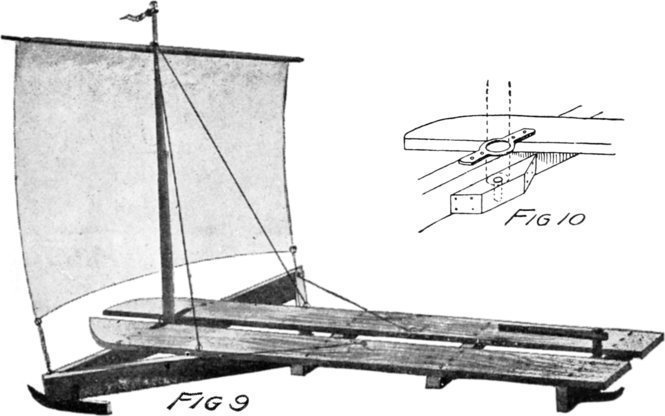 FIG 10
FIG 9